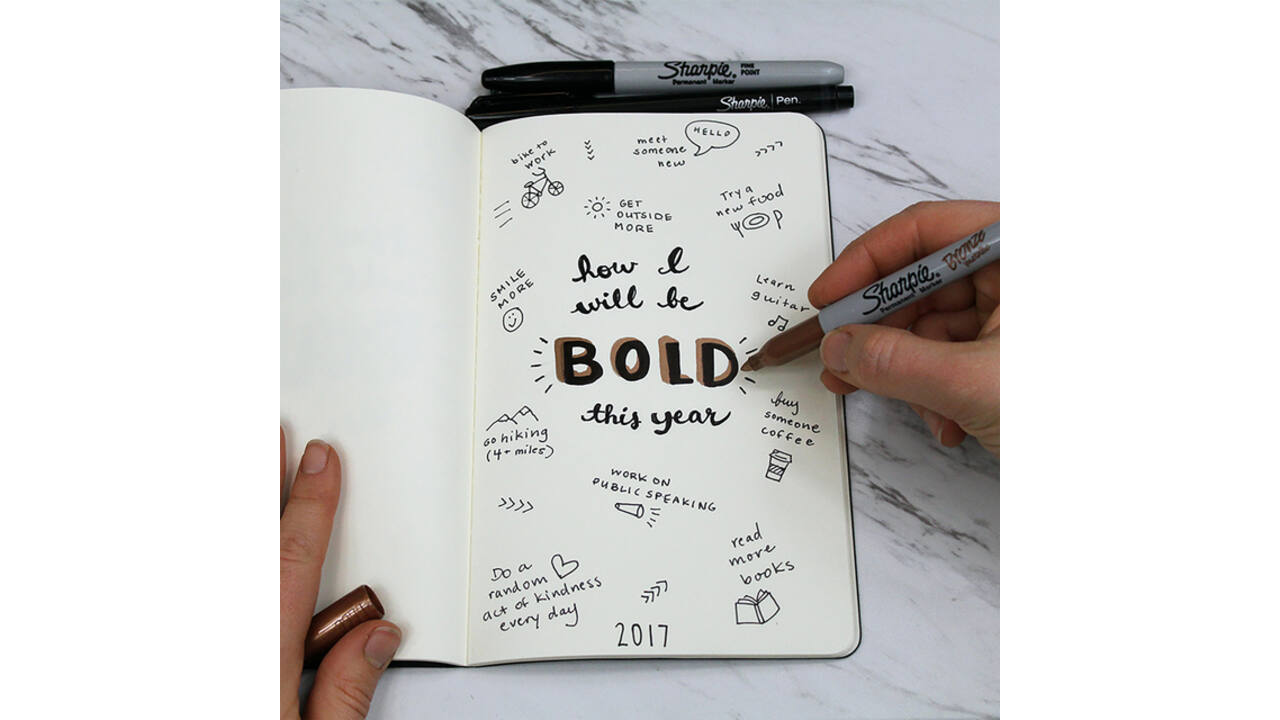 Sharpie. FINE
POINT
Permanent Marker
Sharpie. Pen.
bike to
work
meet
someone
new
HELLO
GET
OUTSIDE
MORE
Try a
new food
how I
will be
BOLD
this year
SMILE
MORE
Learn
guitar
Sharpie.
Permanent Marker
Bronze
buy
someone
coffee
Go hiking
(4+ miles)
WORK ON
PUBLIC SPEAKING
read
more
books
Do a
random
act of kindness
every day
2017